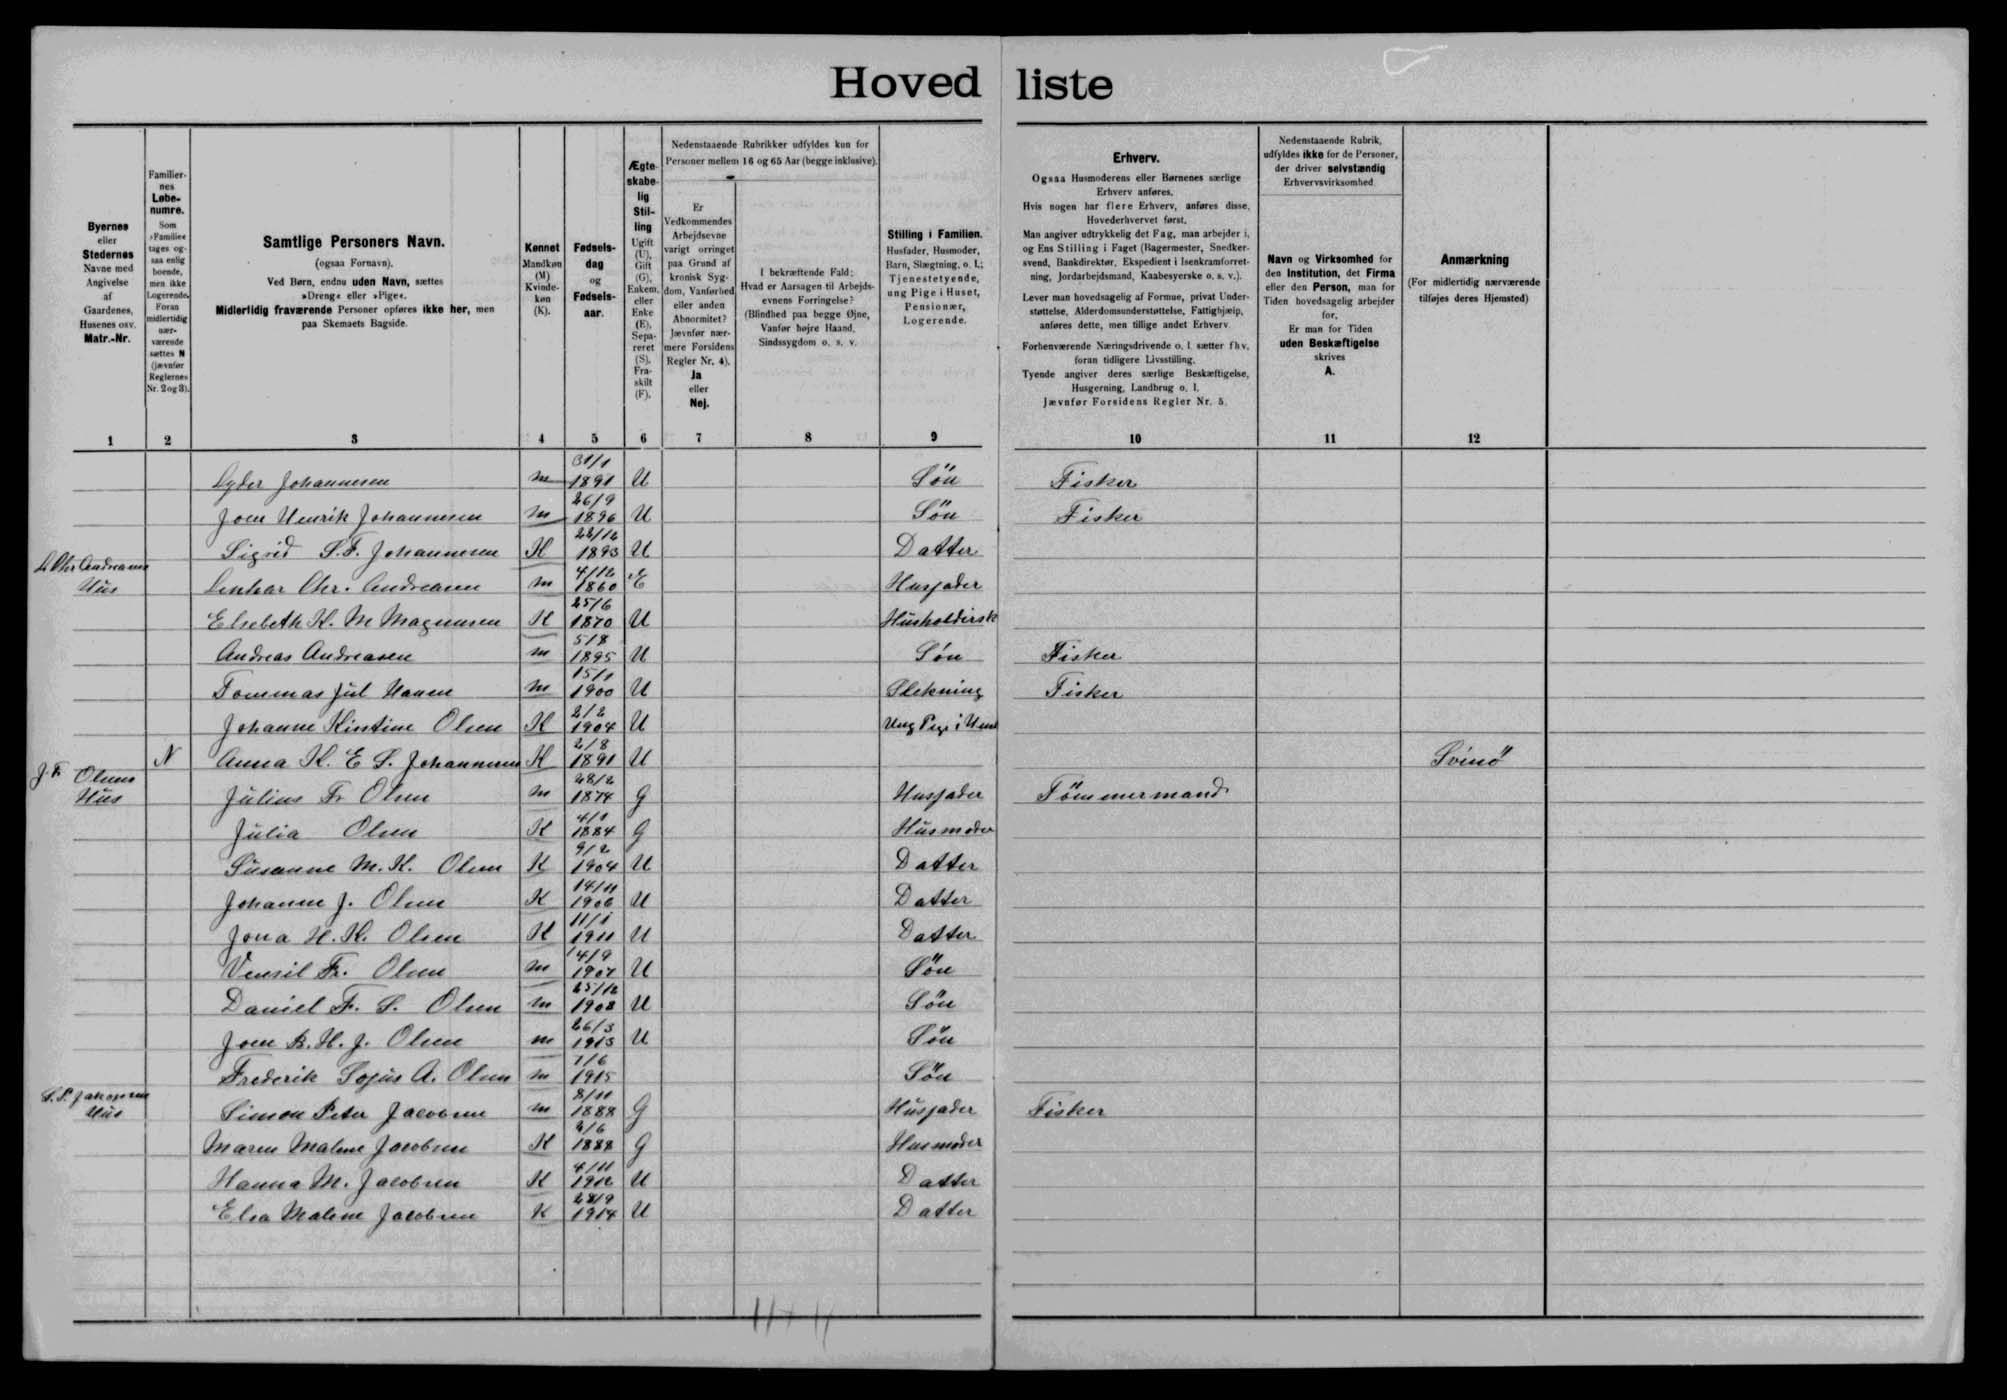 Hoved liste
Byernes
eller
Stedernes
Navne med
Angivelse
af
Gaardenes,
Husenes osv.
Matr.-Nr.
Familier-
nes
Løbe-
numre.
Som
»Familie«
tages og-
saa enlig
boende,
men ikke
Logerende.
Foran
midlertidig
nær-
værende
sættes N
(jævnfør
Reglernes
Nr. 2 og 3).
Samtlige Personers Navn.
(ogsaa Fornavn).
Ved Børn, endnu uden Navn, sættes
»Dreng« eller »Pige«.
Midlertidig fraværende Personer opføres ikke her, men
paa Skemaets Bagside.
Kønnet
Mandkøn
(M)
Kvinde-
køn
(K).
Fødsels-
dag
og
Fødsels-
aar.
Ægte-
skabe-
lig
Stil-
ling
Ugift
(U),
Gift
(G),
Enkem.
eller
Enke
(E),
Sepa-
reret
(S).
Fra-
skilt
(F).
Nedenstaaende Rubrikker udfyldes kun for
Personer mellem 16 og 65 Aar (begge inklusive).
Er
Vedkommendes
Arbejdsevne
varigt forringet
paa Grund af
kronisk Syg-
dom, Vanførhed
eller anden
Abnormitet?
Jævnfør nær-
mere Forsidens
Regler Nr. 4).
Ja
eller
Nej.
I bekræftende Fald:
Hvad er Aarsagen til Arbejds-
evnens Forringelse?
(Blindhed paa begge Øjne,
Vanfør højre Haand,
Sindssygdom o. s. v.
Stilling i Familien.
Husfader, Husmoder,
Barn, Slægtning, o. l.;
Tjenestetyende,
ung Pige i Huset,
Pensionær,
Logerende.
Erhverv.
Ogsaa Husmoderens eller Børnenes særlige
Erhverv anføres.
Hvis nogen har flere Erhverv, anføres disse,
Hovederhvervet først.
Man angiver udtrykkelig det Fag, man arbejder i,
og Ens Stilling i Faget (Bagermester, Snedker-
svend, Bankdirektør, Ekspedient i Isenkramforret-
ning, Jordarbejdsmand, Kaabesyerske o. s. v.).
Lever man hovedsagelig af Formue, privat Under-
støttelse, Alderdomsunderstøttelse, Fattighjælp,
anføres dette, men tillige andet Erhverv.
Forhenværende Næringsdrivende o. l. sætter fhv.
foran tidligere Livsstilling.
Tyende angiver deres særlige Beskæftigelse,
Husgerning, Landbrug o. l.
Jævnfør Forsidens Regler Nr. 5.
Nedenstaaende Rubrik,
udfyldes ikke for de Personer,
der driver selvstændig
Erhvervsvirksomhed
Navn og Virksomhed for
den Institution, det Firma
eller den Person, man for
Tiden hovedsagelig arbejder
for.
Er man for Tiden
uden Beskæftigelse
skrives
A.
Anmærkning
(For midlertidig nærværende
tilføjes deres Hjemsted)
1 2 3 4 5 6 7 8 9 10 11 12
Lyder Johannesen m 31/1 1891 U Søn Fisker
Joen Henrik Johannesen m 26/9 1896 U Søn Fisker
Sigrid S. F. Johannesen K 1893 U Datter
Hus Chr. Andreasen m 4/12 1860 E Husfader
Elsebeth K. M Magnusen K 25/6 1870 U
Andreas Andreasen m 5/8 1895 U Søn Fisker
Tommas Jul Hansen m 15/1 1900 U Slekning Fisker
Johanne Kirstine Olsen K 2/2 1904 U Ung Pige i
N Anna K. E S. Johannesen K 2/8 1891 U Svinø
J. F. Olsens
Hus Julius Fr Olsen m 28/2 1874 G Husfader Tømmermand
Julia Olsen K 4/1 1884 G Husmoder
Susanne M. K. Olsen K 9/2 1904 U Datter
Johanne J. Olsen K 14/11 1906 U Datter
Jona H. K. Olsen K 11/1 1911 U Datter
Vensil Fr. Olsen m 14/9 1907 U Søn
Daniel F. S. Olsen m 25/12 1908 U Søn
Joen B. H. J. Olsen m 26/3 1913 U Søn
Frederik Sofus A. Olsen m 7/6 1915 Søn
S. P. Jakopsen
Hus Simon Peter Jacobsen m 8/11 1888 G Husfader Fisker
Maren Malene Jacobsen K 1888 G Husmoder
Hanna M. Jacobsen K 4/11 1912 U Datter
Elsa Malene Jacobsen K 28/9 1914 U Datter